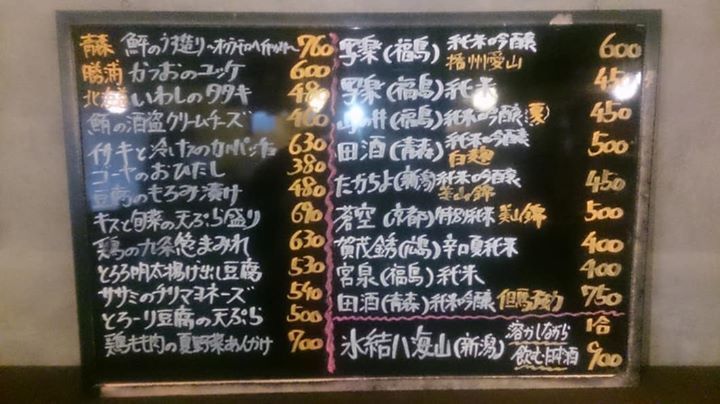 青森 鮃のうす造り 760
勝浦 かつおのユッケ 600
北海道 いわしのタタキ 480
鮪の酒盗クリームチーズ
イサキと冷しトマトのカルパッチョ 630
ゴーヤのおひたし 380
豆腐のもろみ漬け 480
キスと旬菜の天ぷら盛り 690
鶏の九条葱まみれ 630
とろろ明太揚げ出し豆腐 530
ササミのチリマヨネーズ 540
とろーり豆腐の天ぷら 500
鶏もも肉の夏野菜あんかけ 700
写楽(福島)純米吟醸 600
播州愛山
写楽(福島)純米 45
純米吟醸 夏 450
田酒(青森)純米吟醸 500
白麹
たかちよ(新潟)純米吟醸 450
美山錦
蒼空(京都)特別純米 美山錦 500
賀茂錦(広島)辛口夏純米 400
宮泉(福島)純米 400
田酒(青森)純米吟醸 750
氷結八海山(新潟) 溶かしながら 1合
飲む日本酒 900